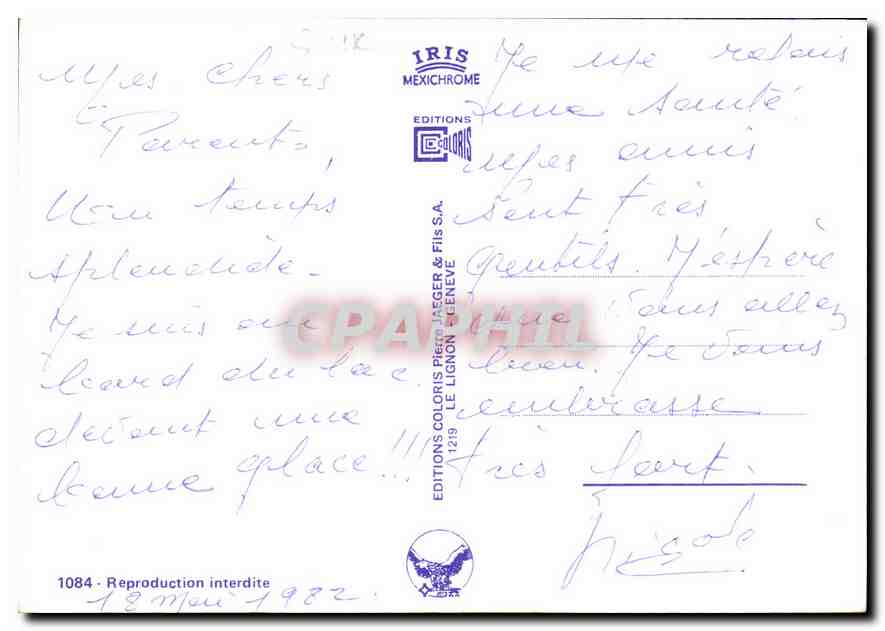 Mes chers
Parents,
Un temps
splendide.
Je suis au
bord du lac
devant une
bonne glace!!!
1084 - Reproduction interdite
18 Mai 1982
IRIS
MEXICHROME
EDITIONS
COLORIS
EDITIONS COLORIS Pierre JAEGER & Fils S.A.
1219 LE LIGNON - GENEVE
CPAPHIL
Je me refais
une santé.
Mes amis
sont très
gentils. J'espère
que vous allez
bien. Je vous
embrasse
très fort.
Nicole